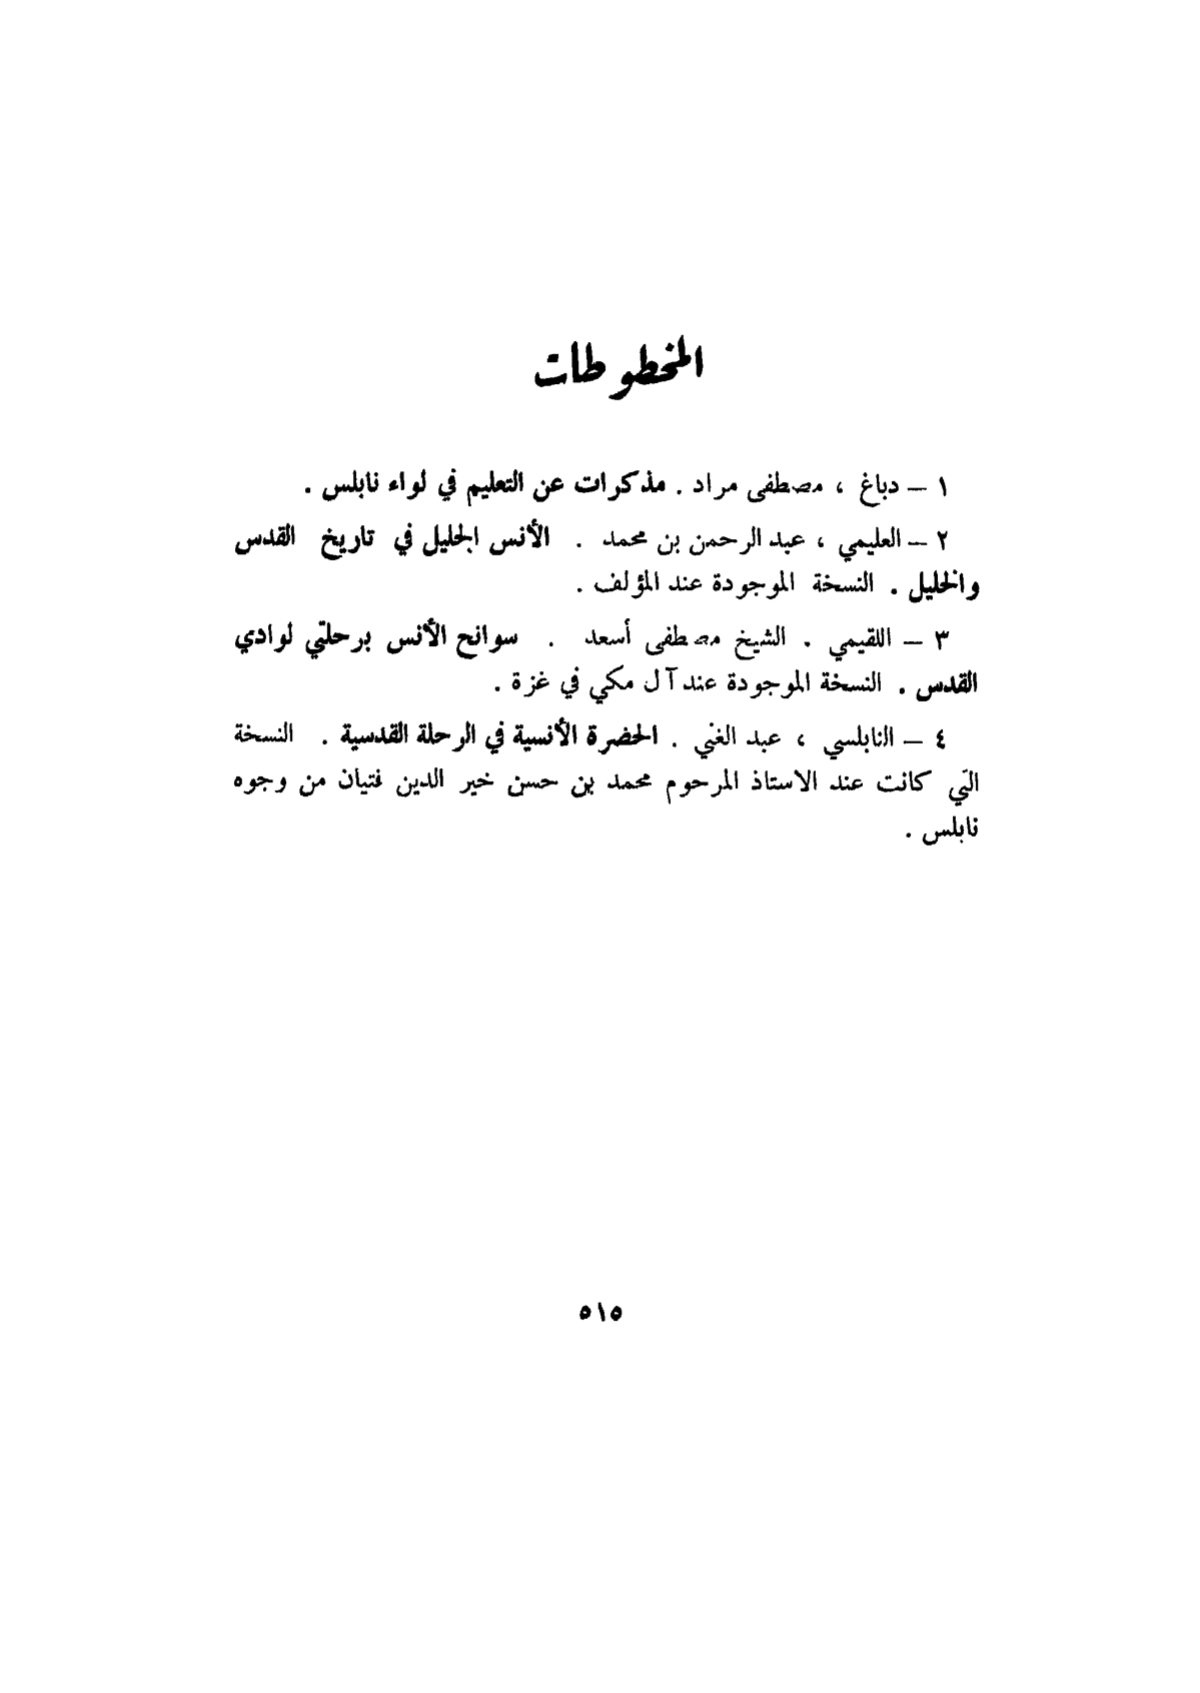 المخطوطات
١ — دباغ ، مصطفى مراد . مذكرات عن التعليم في لواء نابلس .
٢ — العليمي ، عبد الرحمن بن محمد . الأنس الجليل في تاريخ القدس
والخليل . النسخة الموجودة عند المؤلف .
٣ — اللقيمي . الشيخ مصطفى أسعد . سوانح الأنس برحلتي لوادي
القدس . النسخة الموجودة عند آل مكي في غزة .
٤ — النابلسي ، عبد الغني . الحضرة الأنسية في الرحلة القدسية . النسخة
التي كانت عند الاستاذ المرحوم محمد بن حسن خير الدين فتيان من وجوه
نابلس .
٥١٥